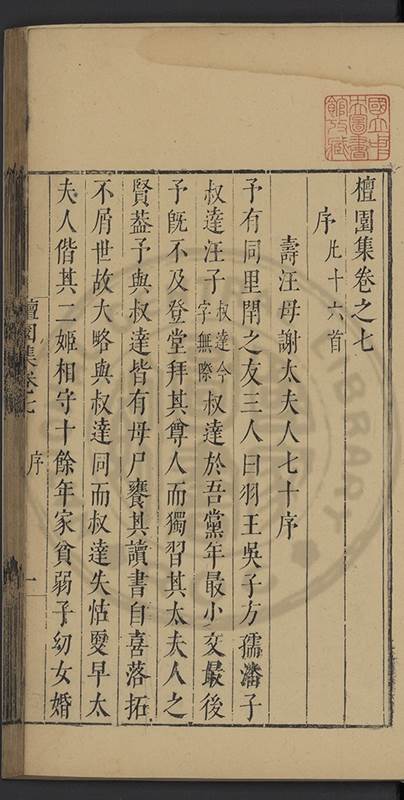 檀園集卷之七
序凡十六首
壽汪母謝太夫人七十序
予有同里閈之友三人曰羽王吳子方孺潘子
叔達汪子叔達今字無際叔達於吾黨年最小交最後
予旣不及登堂拜其尊人而獨習其太夫人之
賢葢予與叔達皆有母尸饔其讀書自喜落拓
不屑世故大略與叔達同而叔達失怙㪅早太
夫人偕其二姬相守十餘年家貧弱子幼女婚
檀園集卷七
序
一
國立中央圖書館收藏